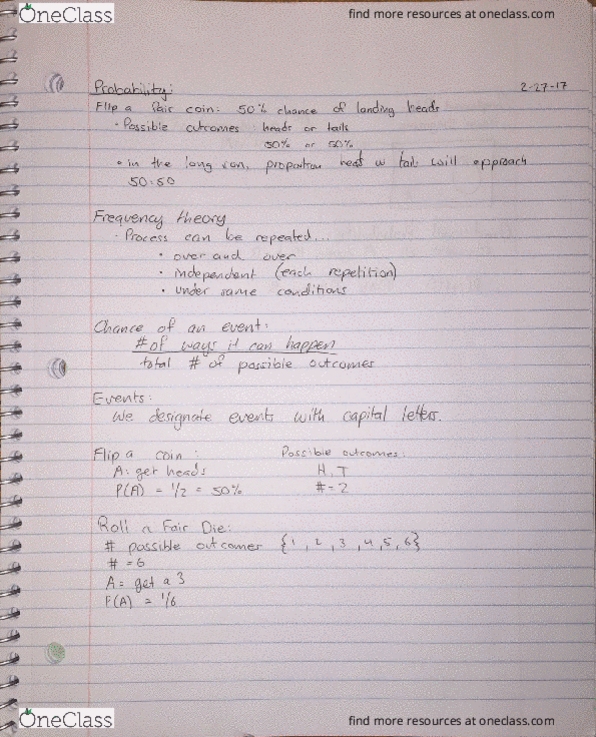 OneClass
find more resources at oneclass.com
Probability:
2-27-17
Flip a Fair coin: 50% chance of landing heads
· Possible outcomes: heads or tails
50% or 50%
• in the long run, proportion heads w tails will approach
50:50
Frequency theory
· Process can be repeated...
• over and over
• independent (each repetition)
• under same conditions
Chance of an event:
# of ways it can happen
total # of possible outcomes
Events:
We designate events with capital letters.
Flip a coin:
Possible outcomes:
A: get heads
H, T
P(A) = 1/2 = 50%
# = 2
Roll a Fair Die:
# possible outcomes {1, 2, 3, 4, 5, 6}
# = 6
A = get a 3
P(A) = 1/6
OneClass
find more resources at oneclass.com